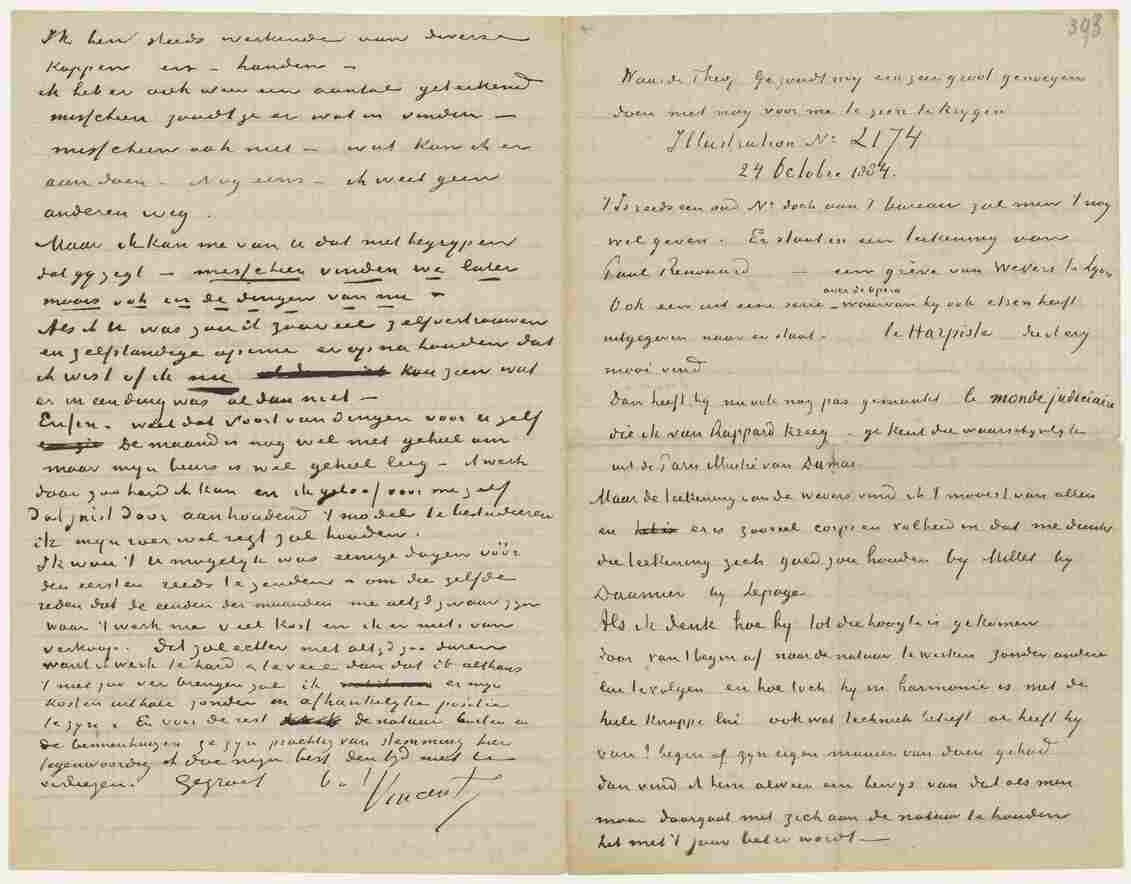 Ik ben steeds werkende aan diverse
koppen en – handen –
ik heb er ook weer een aantal geteekend
misschien zoudt ge er wat in vinden –
misschien ook niet – wat kan ik er
aan doen – Nog eens – ik weet geen
anderen weg.
Maar ik kan me van U dat niet begrypen
dat gy zegt – misschien vinden we later
moois ook in de dingen van nu –
Als ik U was zou ik zooveel zelfvertrouwen
en zelfstandige opinie er op na houden dat
ik wist of ik nu kon zien wat
er in een ding was al dan niet –
Enfin – weet dat soort van dingen voor U zelf
De maand is nog wel niet geheel om
maar myn beurs is wel geheel leeg – ik werk
door zoo hard ik kan en ik geloof voor me zelf
dat juist door aanhoudend 't model te bestudeeren
ik myn roer wel regt zal houden.
Ik wou 't U mogelyk was eenige dagen vóór
den eersten reeds te zenden – om die zelfde
reden dat de einden der maanden me altyd zwaar zyn
waar 't werk me veel kost en ik er niets van
verkoop. Dit zal echter niet altyd zoo duren
want ik werk te hard & te veel dan dat ik althans
't niet zoo ver brengen zal ik er myn
kosten uithale zonder in afhankelyke positie
te zyn. En voor de rest de natuur buiten en
de binnenhuizen ze zyn prachtig van stemming hier
tegenwoordig ik doe myn best den tyd niet te
verliezen. Gegroet b. à t.
Vincent
393
Waarde Theo, Ge zoudt my een zeer groot genoegen
doen met nog voor me te zien te krygen
Illustration No. 2174
24 Octobre 1884.
't Is reeds een oud No. doch aan 't bureau zal men 't nog
wel geven. Er staat in een teekening van
Paul Renouard – een grève van wevers te Lyon
Ook een uit eene serie over de opera – waarvan hy ook etsen heeft
uitgegeven naar er staat – le Harpiste die ik erg
mooi vind
Dan heeft hy nu ook nog pas gemaakt le monde judiciaire
die ik van Rappard kreeg – ge kent die waarschynlyk
uit de Paris Illustré van Dumas.
Maar de teekening van de wevers vind ik 't mooist van allen
en er is zooveel corps en volheid in dat me dunkt
die teekening zich goed zou houden by Millet by
Daumier by Lepage.
Als ik denk hoe hy tot die hoogte is gekomen
door van 't begin af naar de natuur te werken zonder andere
lui te volgen en hoe toch hy in harmonie is met de
heele knappe lui ook wat techniek betreft al heeft hy
van 't begin af zyn eigen manier van doen gehad
dan vind ik hem alweer een bewys van dat als men
maar doorgaat met zich aan de natuur te houden
het met 't jaar beter wordt –